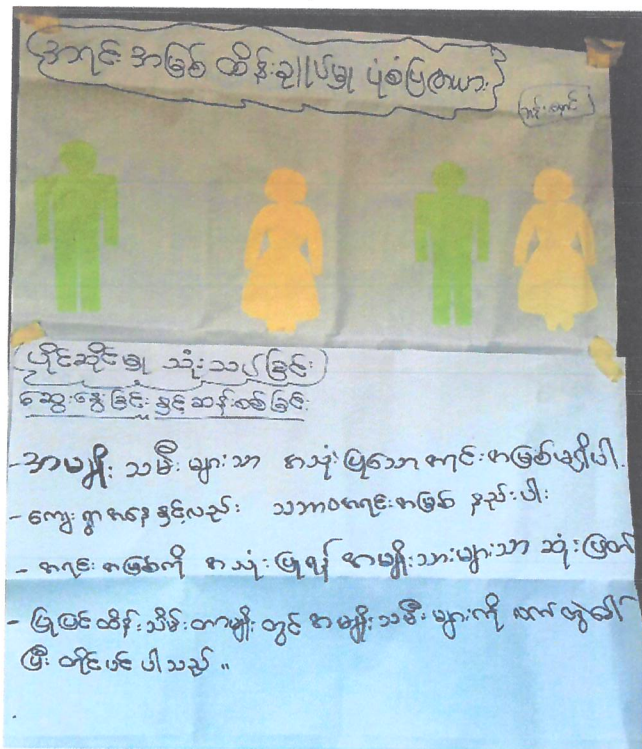 အရင်းအမြစ် ထိန်းချုပ်မှု ပုံစံပြဇယား
ပိုင်ဆိုင်မှု သုံးသပ်ခြင်း
ဆွေးနွေးခြင်း နှင့် ဆန်းစစ်ခြင်း
-အမျိုး သမီး များသာ အသုံးပြုသော အရင်းအမြစ်မရှိပါ.
- ကျေးရွာအနေနှင့်လည်း သဘာဝအရင်းအမြစ် နည်းပါး
- အရင်းအမြစ်ကို အသုံးပြုရန် အမျိုးသားများသာ ဆုံးဖြတ်
- ပြုပြင်ထိန်းသိမ်းတာမျိုးတွင် အမျိုးသမီးများကို လက်တွဲခေါ်
ပြီး တိုင်ပင်ပါသည်။